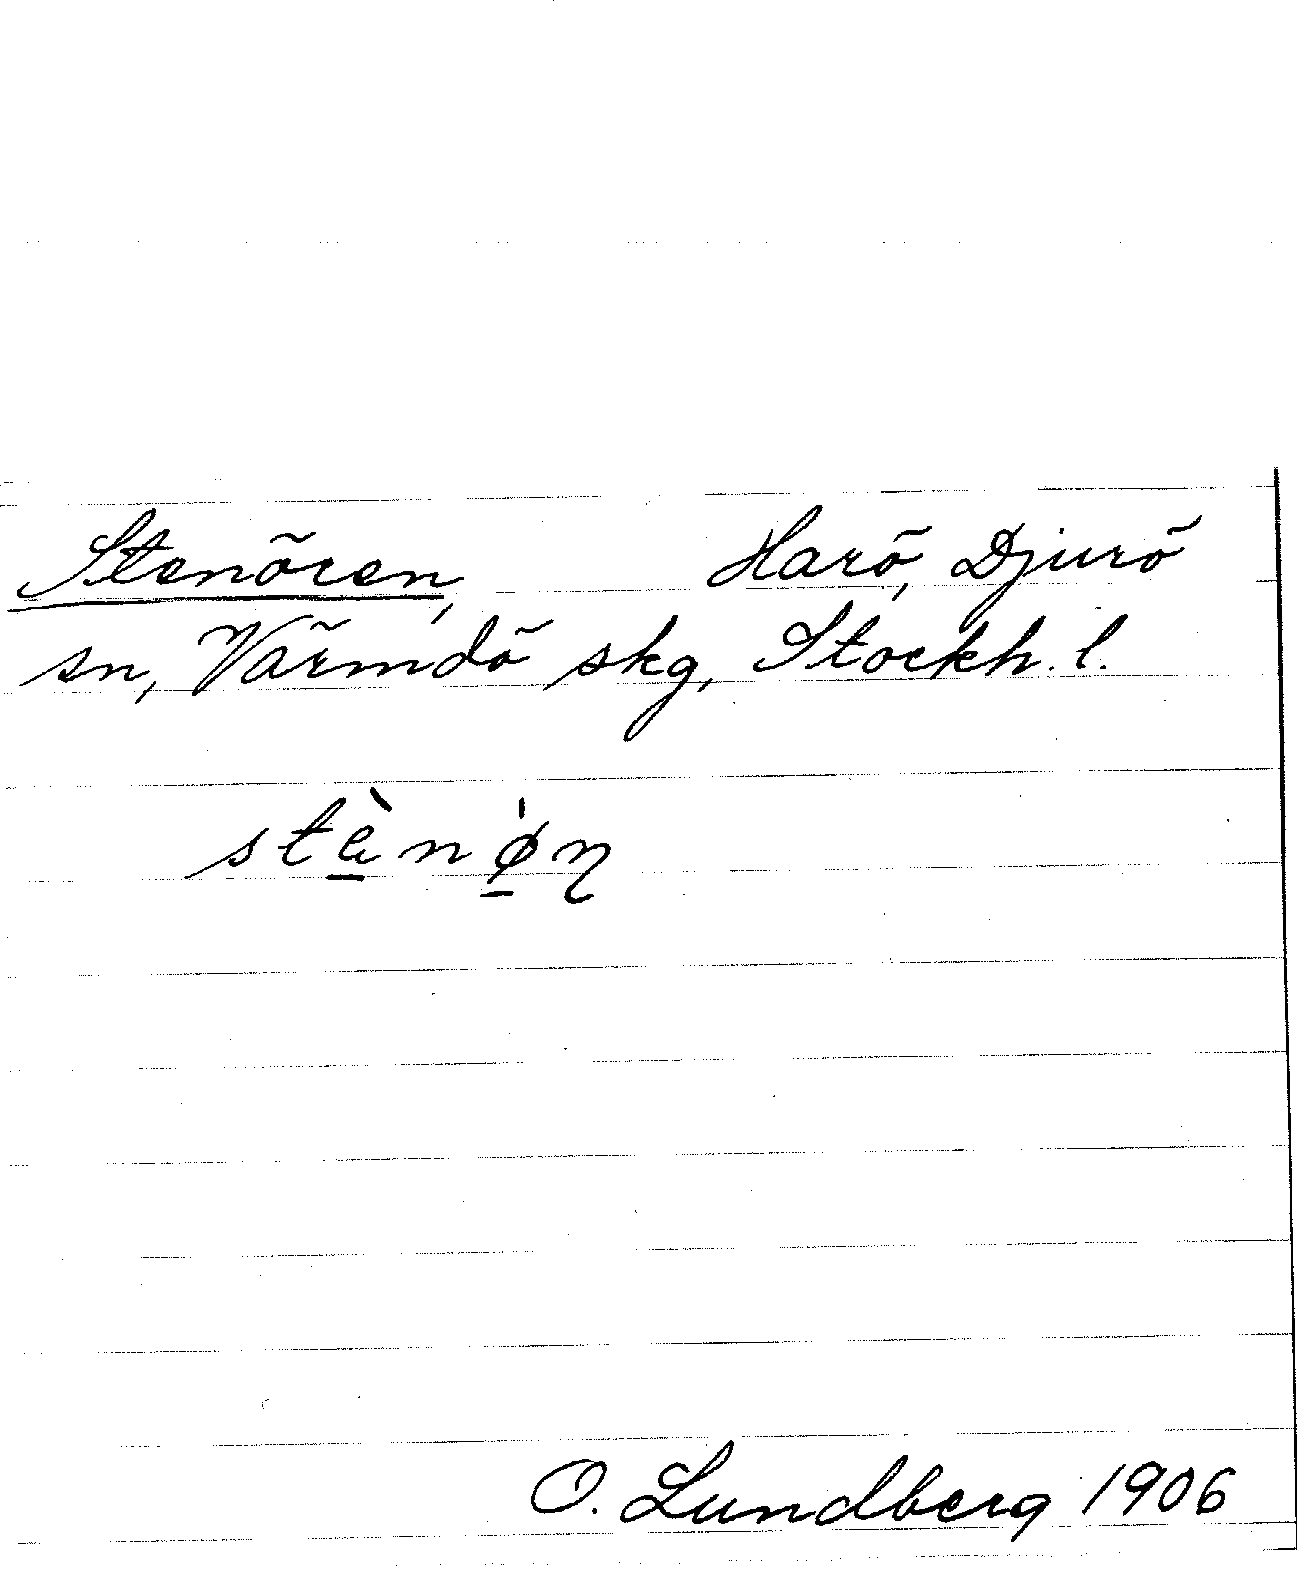 Stenören, Harö, Djurö
sn, Värmdö skg, Stockh. l.
stè̠nø̠̍ɳ
O. Lundberg 1906